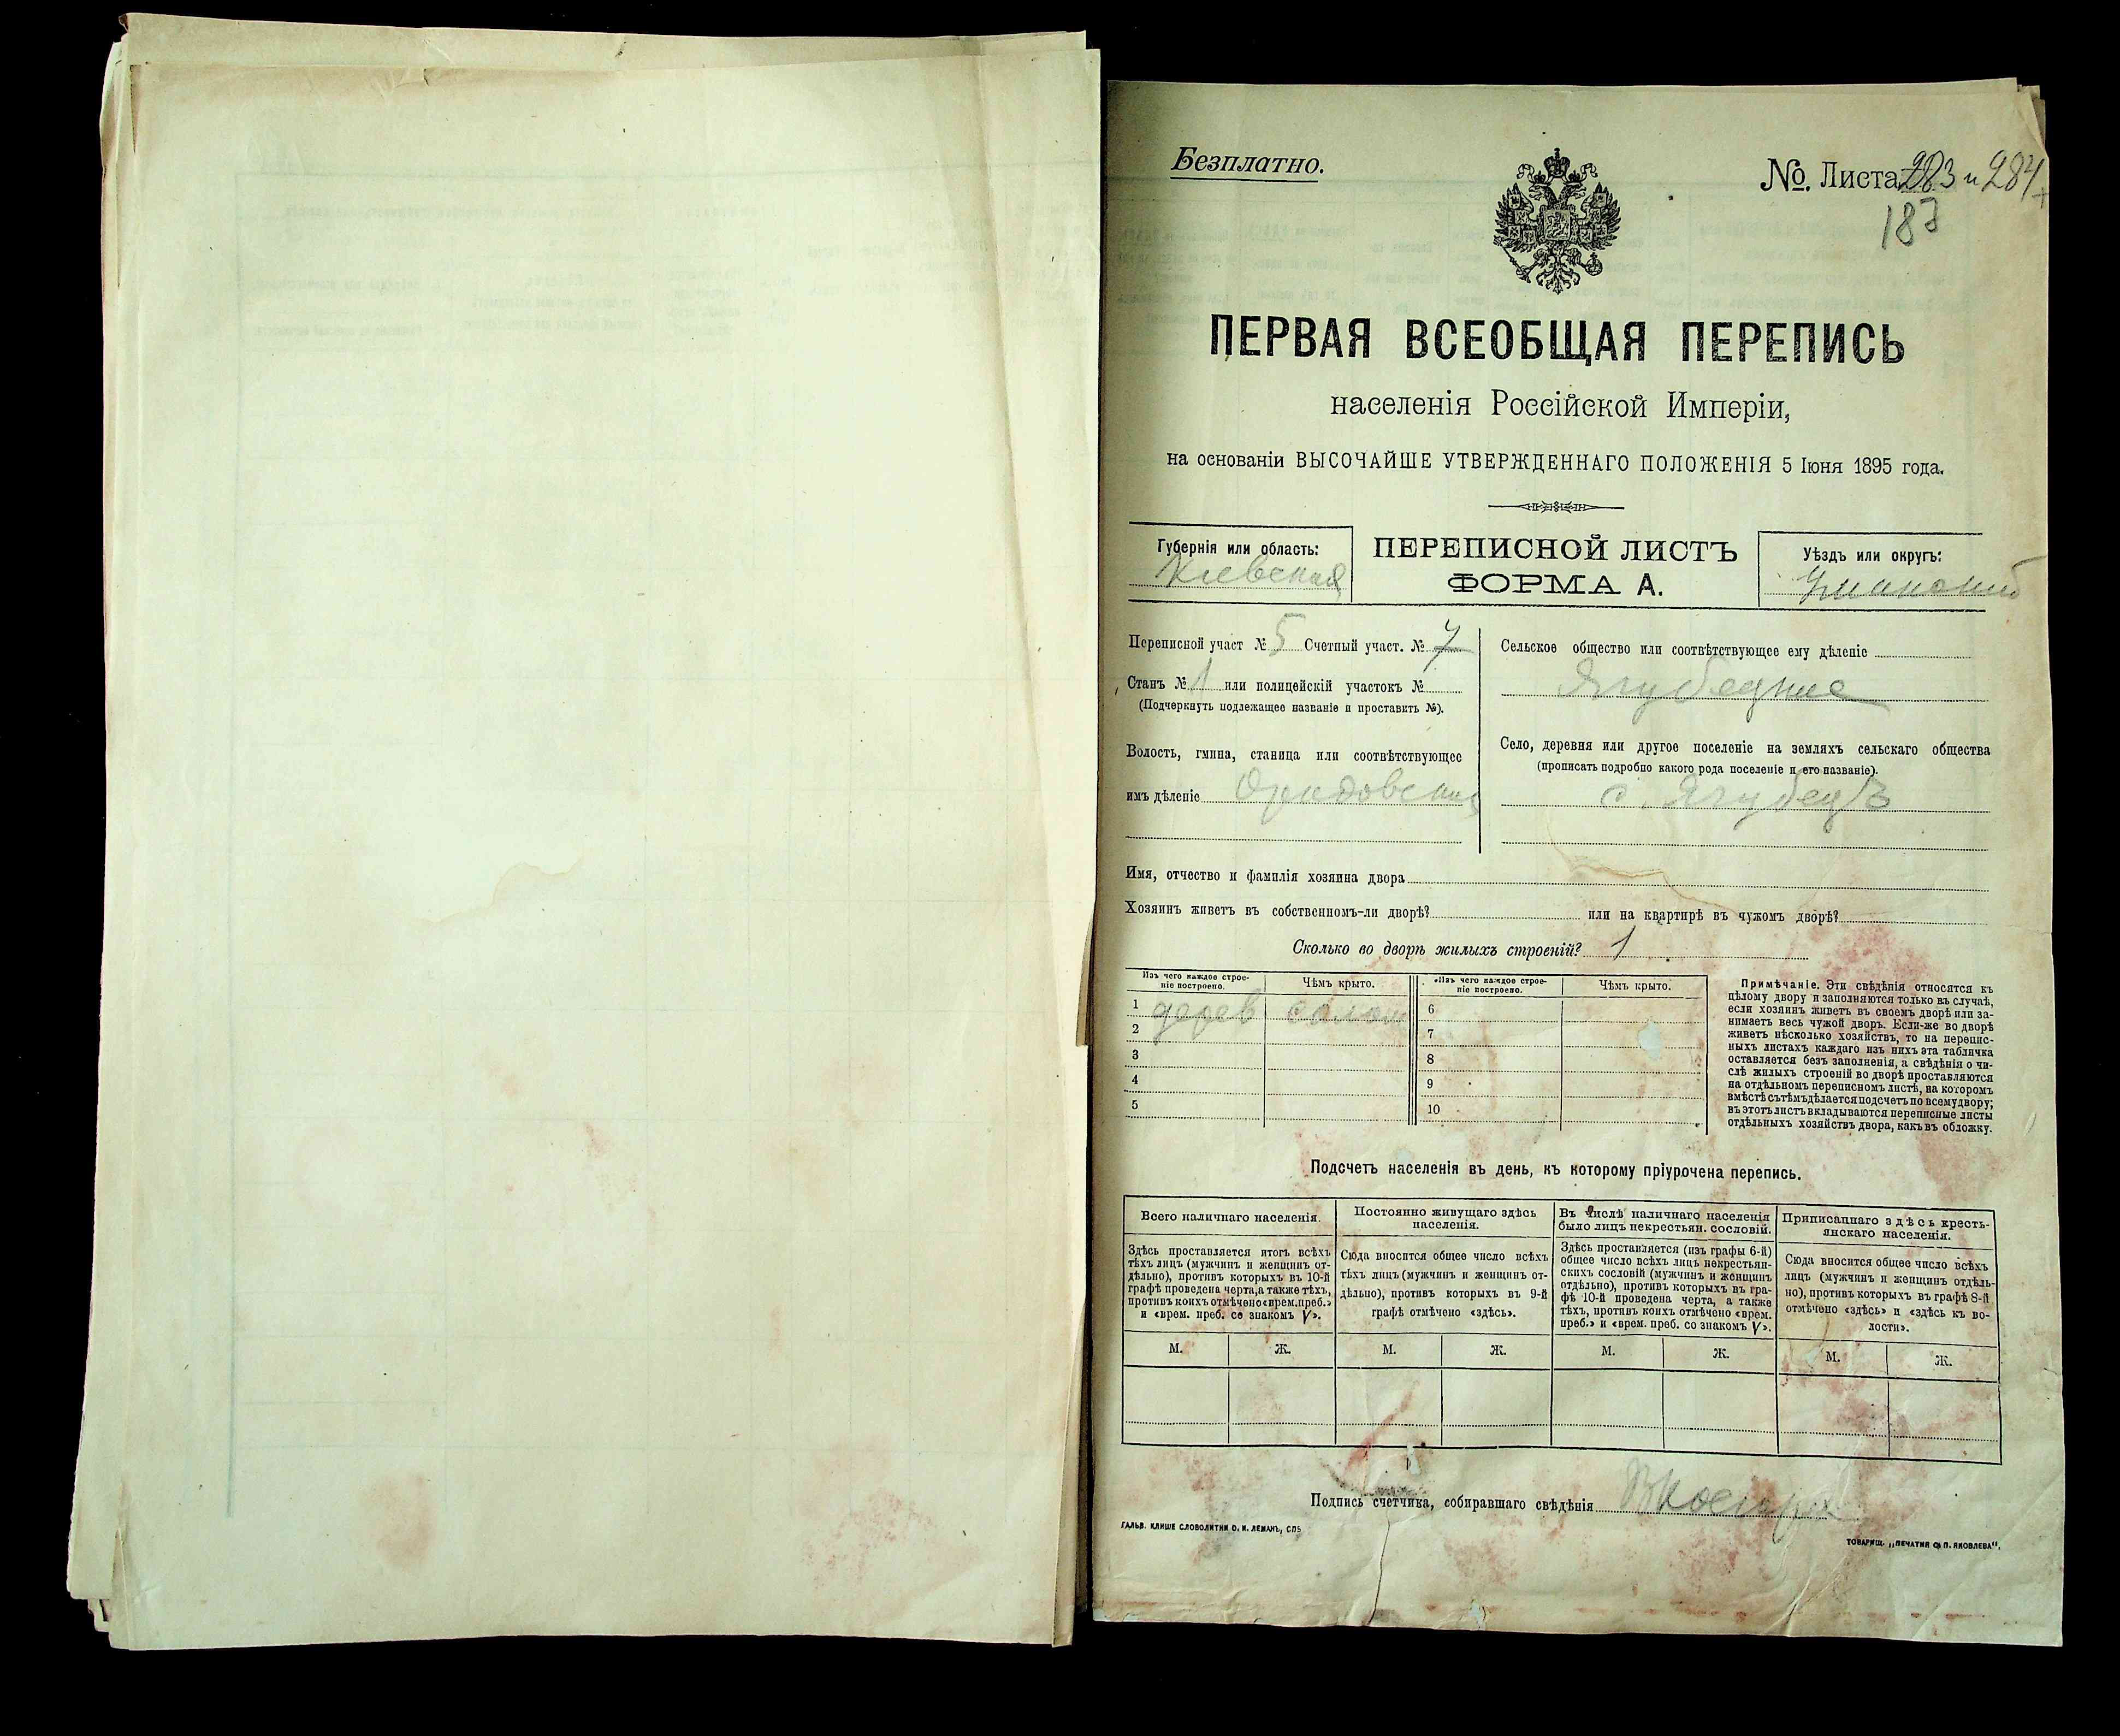 Безплатно.
№. Листа 283 и 284
187
ПЕРВАЯ ВСЕОБЩАЯ ПЕРЕПИСЬ
населенія Россійской Имперіи,
на основаніи ВЫСОЧАЙШЕ УТВЕРЖДЕННАГО ПОЛОЖЕНІЯ 5 Іюня 1895 года.
Губернія или область:
Кіевская
ПЕРЕПИСНОЙ ЛИСТЪ
ФОРМА А.
Уѣздъ или округъ:
Уманскій
Переписной участ № 5 Счетный участ. № 7
Станъ № 1 или полицейскій участокъ №
(Подчеркнуть подлежащее названіе и проставить №).
Волость, гмина, станица или соотвѣтствующее
имъ дѣленіе
Сельское общество или соотвѣтствующее ему дѣленіе
Село, деревня или другое поселеніе на земляхъ сельскаго общества
(прописать подробно какого рода поселеніе и его названіе).
с. Ягубецъ
Имя, отчество и фамилія хозяина двора
Хозяинъ живетъ въ собственномъ-ли дворѣ? или на квартирѣ въ чужомъ дворѣ?
Сколько во дворѣ жилыхъ строеній? 1
Изъ чего каждое строе-
ніе построено.
Чѣмъ крыто.
Изъ чего каждое строе-
ніе построено.
Чѣмъ крыто.
1 дерев солом 6
2 7
3 8
4 9
5 10
Примѣчаніе. Эти свѣдѣнія относятся къ
цѣлому двору и заполняются только въ случаѣ,
если хозяинъ живетъ въ своемъ дворѣ или за-
нимаетъ весь чужой дворъ. Если-же во дворѣ
живетъ нѣсколько хозяйствъ, то на перепис-
ныхъ листахъ каждаго изъ нихъ эта табличка
оставляется безъ заполненія, а свѣдѣнія о чи-
слѣ жилыхъ строеній во дворѣ проставляются
на отдѣльномъ переписномъ листѣ, на которомъ
вмѣстѣ съ тѣмъ дѣлается подсчетъ по всему двору;
въ этотъ листъ вкладываются переписные листы
отдѣльныхъ хозяйствъ двора, какъ въ обложку.
Подсчетъ населенія въ день, къ которому пріурочена перепись.
Всего наличнаго населенія.
Здѣсь проставляется итогъ всѣхъ
тѣхъ лицъ (мужчинъ и женщинъ от-
дѣльно), противъ которыхъ въ 10-й
графѣ проведена черта, а также тѣхъ,
противъ коихъ отмѣчено «врем. преб.»
и «врем. преб. со знакомъ V».
М. Ж.
Постоянно живущаго здѣсь
населенія.
Сюда вносится общее число всѣхъ
тѣхъ лицъ (мужчинъ и женщинъ от-
дѣльно), противъ которыхъ въ 9-й
графѣ отмѣчено «здѣсь».
М. Ж.
Въ числѣ наличнаго населенія
было лицъ некрестьян. сословій.
Здѣсь проставляется (изъ графы 6-й)
общее число всѣхъ лицъ некрестьян-
скихъ сословій (мужчинъ и женщинъ
отдѣльно), противъ которыхъ въ гра-
фѣ 10-й проведена черта, а также
тѣхъ, противъ коихъ отмѣчено «врем.
преб.» и «врем. преб. со знакомъ V».
М. Ж.
Приписаннаго здѣсь кресть-
янскаго населенія.
Сюда вносится общее число всѣхъ
лицъ (мужчинъ и женщинъ отдѣль-
но), противъ которыхъ въ графѣ 8-й
отмѣчено «здѣсь» и «здѣсь къ во-
лости».
М. Ж.
Подпись счетчика, собиравшаго свѣдѣнія
ГАЛЬВ. КЛИШЕ СЛОВОЛИТНИ О. И. ЛЕМАНЪ, СПБ
ТОВАРИЩ. „ПЕЧАТНЯ С. П. ЯКОВЛЕВА“.